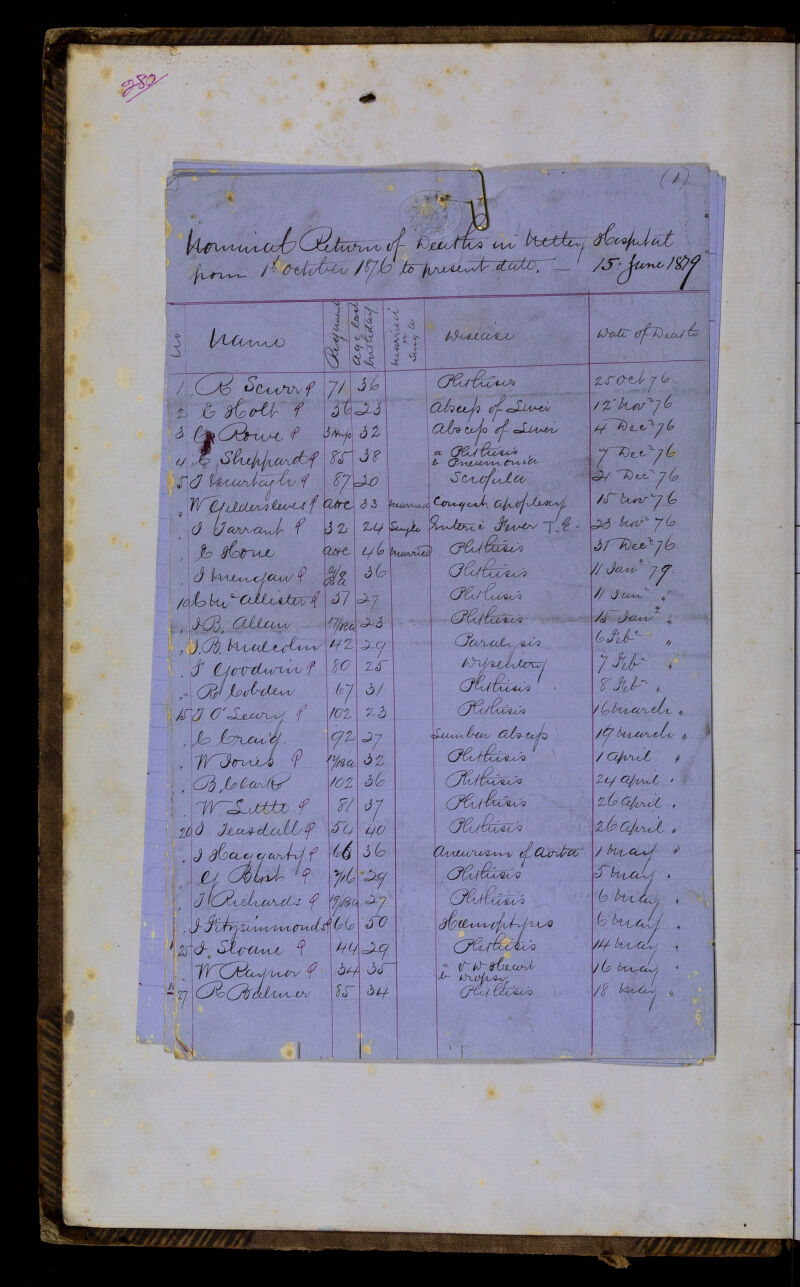 280
(1)
Nominal Return of Deaths in Netley Hospital
from 1st October 1876 to present date. — 15 June 1879
No Name Regiment age last birthday married or single Disease Date of Death
1 R Scurr 71 36 Phthisis 25 Oct 76
2 C Holt 36 23 Abscess of Liver 12 Novr 76
3 C Rowe 32 Abscess of Liver 4 Decr 76
4 C Sheppard 85 38 a Phthisis b Pneumonia 7 Decr 76
5 J Murtagh 87 20 Scrofula 21 Decr 76
W Gildersleves AHC 33 married Congest. apoplexy 15 Novr 76
J Tarrant 32 24 Single Enteric Fever 23 Novr 76
E Hone AHC 46 married Phthisis 31 Decr 76
J 36 Phthisis 11 Janr 79.
10 C McAllister 51 27 Phthisis 11 Janr "
J B. Allan 17/RA 23 Phthisis 15 Janr "
J. B. Malcolm 42 29 Paralysis 6 Febr "
F Goodwin 80 25 Dysentery 7 Febr "
R Cobden 67 31 Phthisis 8 Febr "
15 J O'Leary 102 23 Phthisis 16 March "
C Craig 92 27 Lumbar Abscess 19 March "
W Jones 32 Phthisis 1 April "
B. Clark 102 36 Phthisis 24 April "
W Little 81 37 Phthisis 26 April "
20 J Teasdall 54 40 Phthisis 26 April "
J Haggarty 66 36 Aneurism of Aorta 1 May "
G 2/16 29 Phthisis 5 May "
J Richards 19/RA 27 Phthisis 6 May "
J Fitzsimmonds 66 50 Hæmoptysis 6 May "
25 J. Sloane 44 29 Phthisis 14 May "
W Raynor 34 35 a V. D Heart b Dropsy 16 May "
27 R Balmer 85 34 Phthisis 18 May "